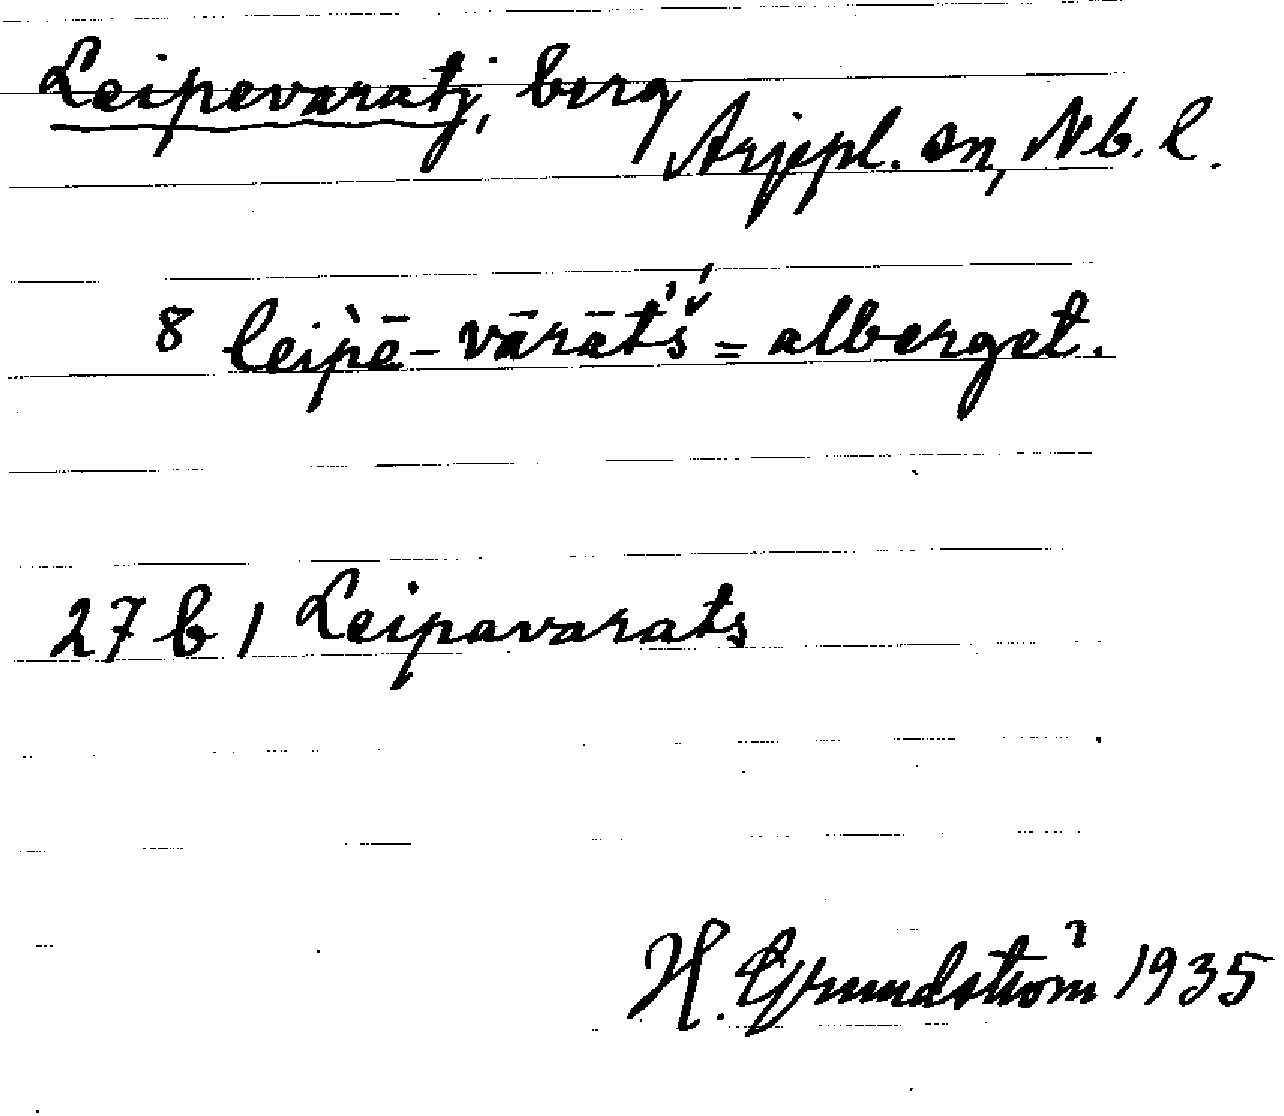 Leipevaratj, berg
Arjepl. sn, Nb. l.
8 leip̀ē-vārāt́š́ = alberget.
27 b 1 Leipavarats
H. Grundström 1935